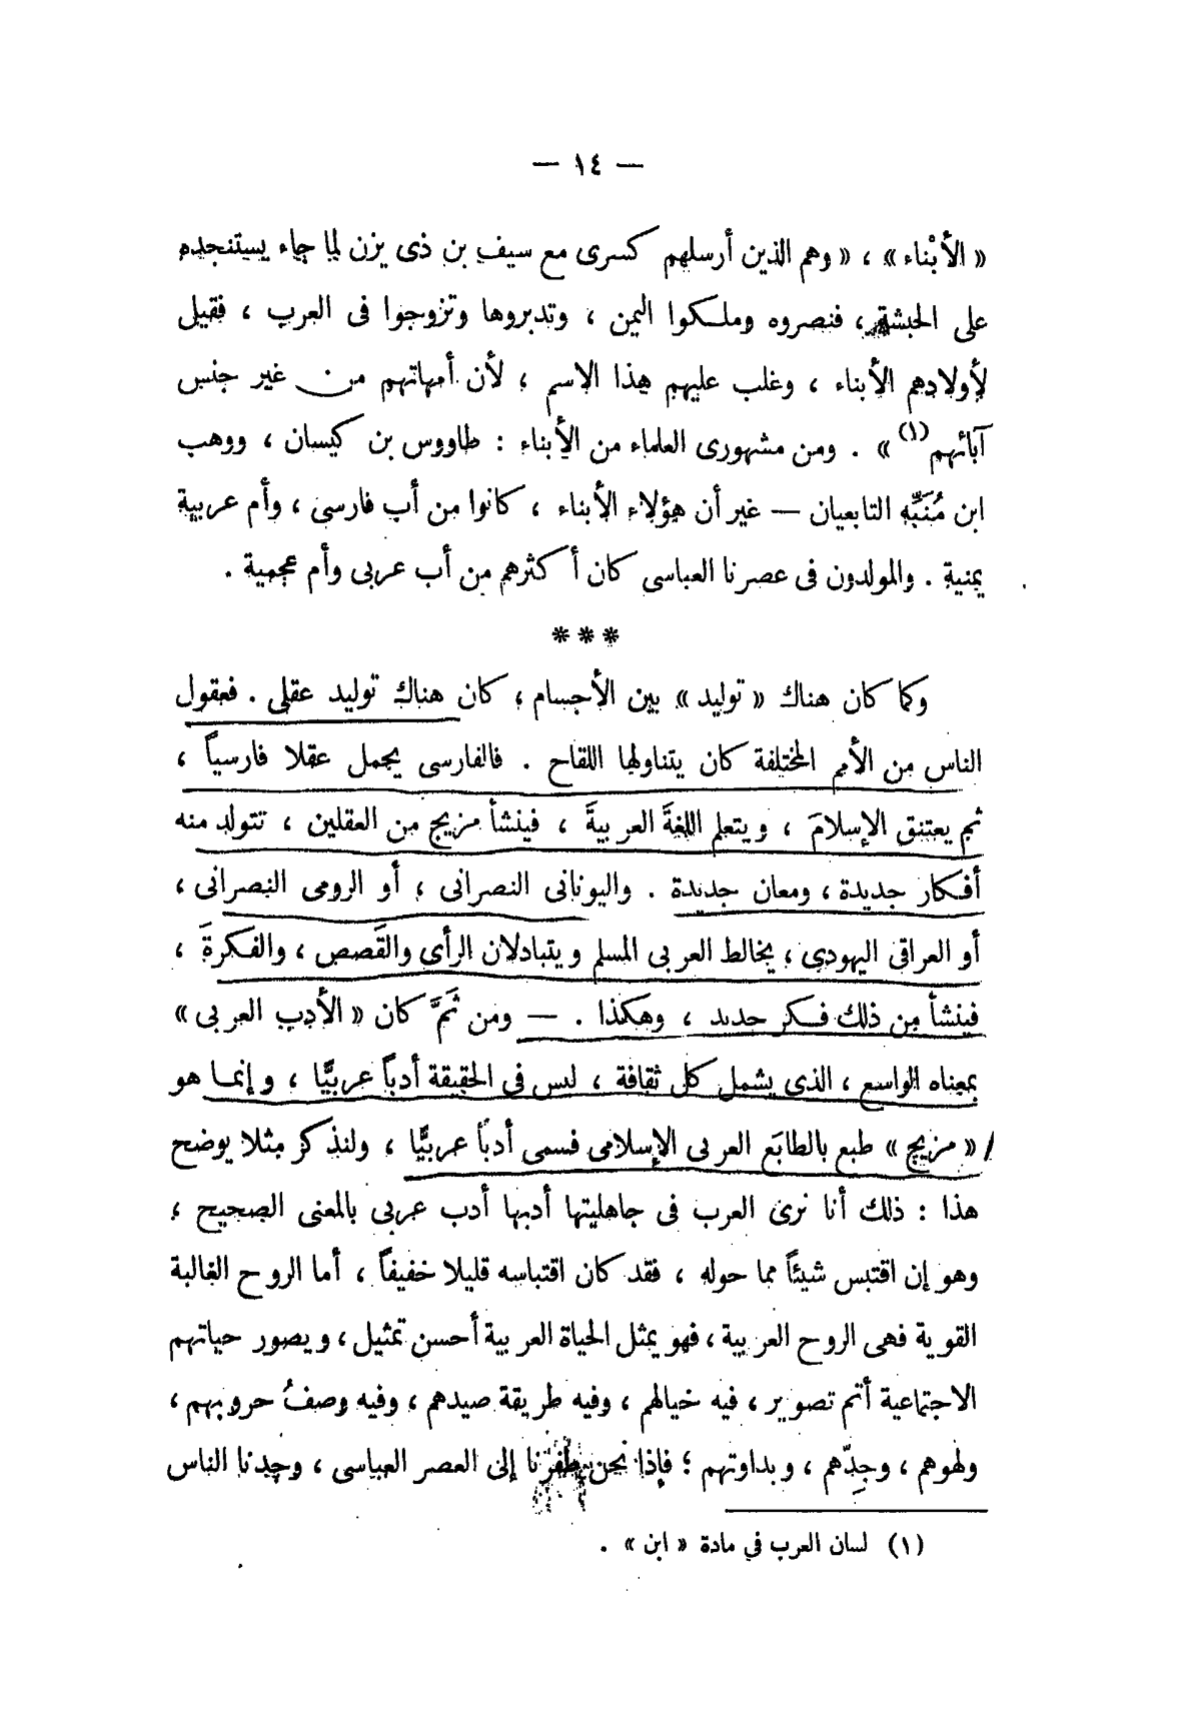 — ١٤ —
« الأبْناء » ، « وهم الذين أرسلهم كسرى مع سيف بن ذى يزن لما جاء يستنجده
على الحبشة ، فنصروه وملكوا اليمن ، وتدبروها وتزوجوا فى العرب ، فقيل
لأولادهم الأبناء ، وغلب عليهم هذا الاسم ؛ لأن أمهاتهم من غير جنس
آبائهم(١) » . ومن مشهورى العلماء من الأبناء : طاووس بن كيسان ، ووهب
ابن مُنَبِّه التابعيان — غير أن هؤلاء الأبناء ، كانوا من أب فارسى ، وأم عربية
يمنية . والمولدون فى عصرنا العباسى كان أكثرهم من أب عربى وأم عجمية .
***
وكما كان هناك « توليد » بين الأجسام ؛ كان هناك توليد عقلى . فعقول
الناس من الأمم المختلفة كان يتناولها اللقاح . فالفارسى يحمل عقلا فارسياً ،
ثم يعتنق الإسلامَ ، ويتعلم اللغةَ العربيةَ ، فينشأ مزيج من العقلين ، تتولد منه
أفكار جديدة ، ومعان جديدة . واليونانى النصرانى ؛ أو الرومى النصرانى ،
أو العراقى اليهودى ؛ يخالط العربى المسلم ويتبادلان الرأى والقَصص ، والفكرةَ ،
فينشأ من ذلك فكر جديد ، وهكذا . — ومن ثَمَّ كان « الأدب العربى »
بمعناه الواسع ، الذى يشمل كل ثقافة ، ليس فى الحقيقة أدباً عربيًّا ، وإنما هو
« مزيج » طبع بالطابَع العربى الإسلامى فسمى أدباً عربيًّا ، ولنذكر مثلا يوضح
هذا : ذلك أنا نرى العرب فى جاهليتها أدبها أدب عربى بالمعنى الصحيح ؛
وهو إن اقتبس شيئاً مما حوله ، فقد كان اقتباسه قليلا خفيفاً ، أما الروح الغالبة
القوية فهى الروح العربية ، فهو يمثل الحياة العربية أحسن تمثيل ، ويصور حياتهم
الاجتماعية أتم تصوير ، فيه خيالهم ، وفيه طريقة صيدهم ، وفيه وصفُ حروبهم ،
ولهوهم ، وجِدّهم ، وبداوتهم ؛ فإذا نحن طفرنا إلى العصر العباسى ، وجدنا الناس
(١) لسان العرب في مادة « ابن » .